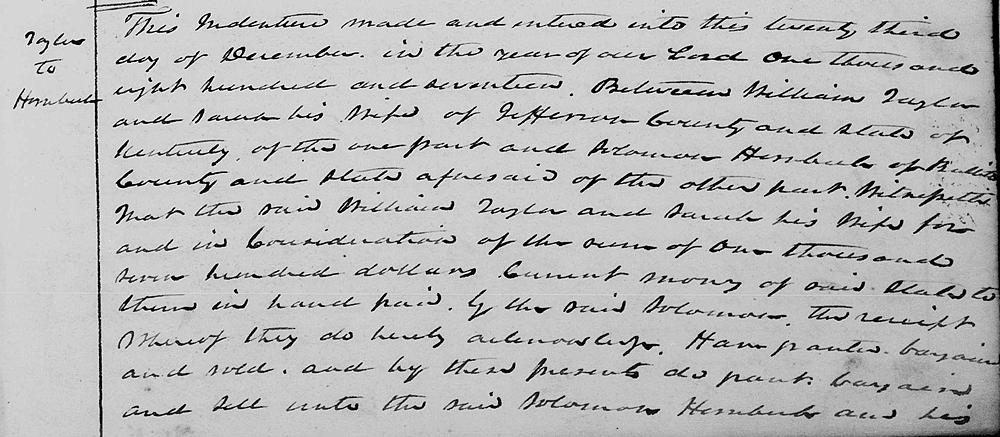 Taylor
to
Hornbeck
This Indenture made and entered into this twenty third
day of December. in the year of our Lord One thousand
eight hundred and seventeen. Between William Taylor
and Sarah his Wife of Jefferson County and State of
Kentucky of the one part and Solomon Hornbeck of Bullitt
County and State aforesaid of the other part. Witnesseth
that the said William Taylor and Sarah his Wife for
and in Consideration of the sum of One thousand
seven hundred dollars Current money of said State to
them in hand paid. by the said Solomon, the receipt
whereof they do hereby acknowledge. Have granted bargain
and sold. and by these presents do grant bargain
and sell unto the said Solomon Hornbeck and his